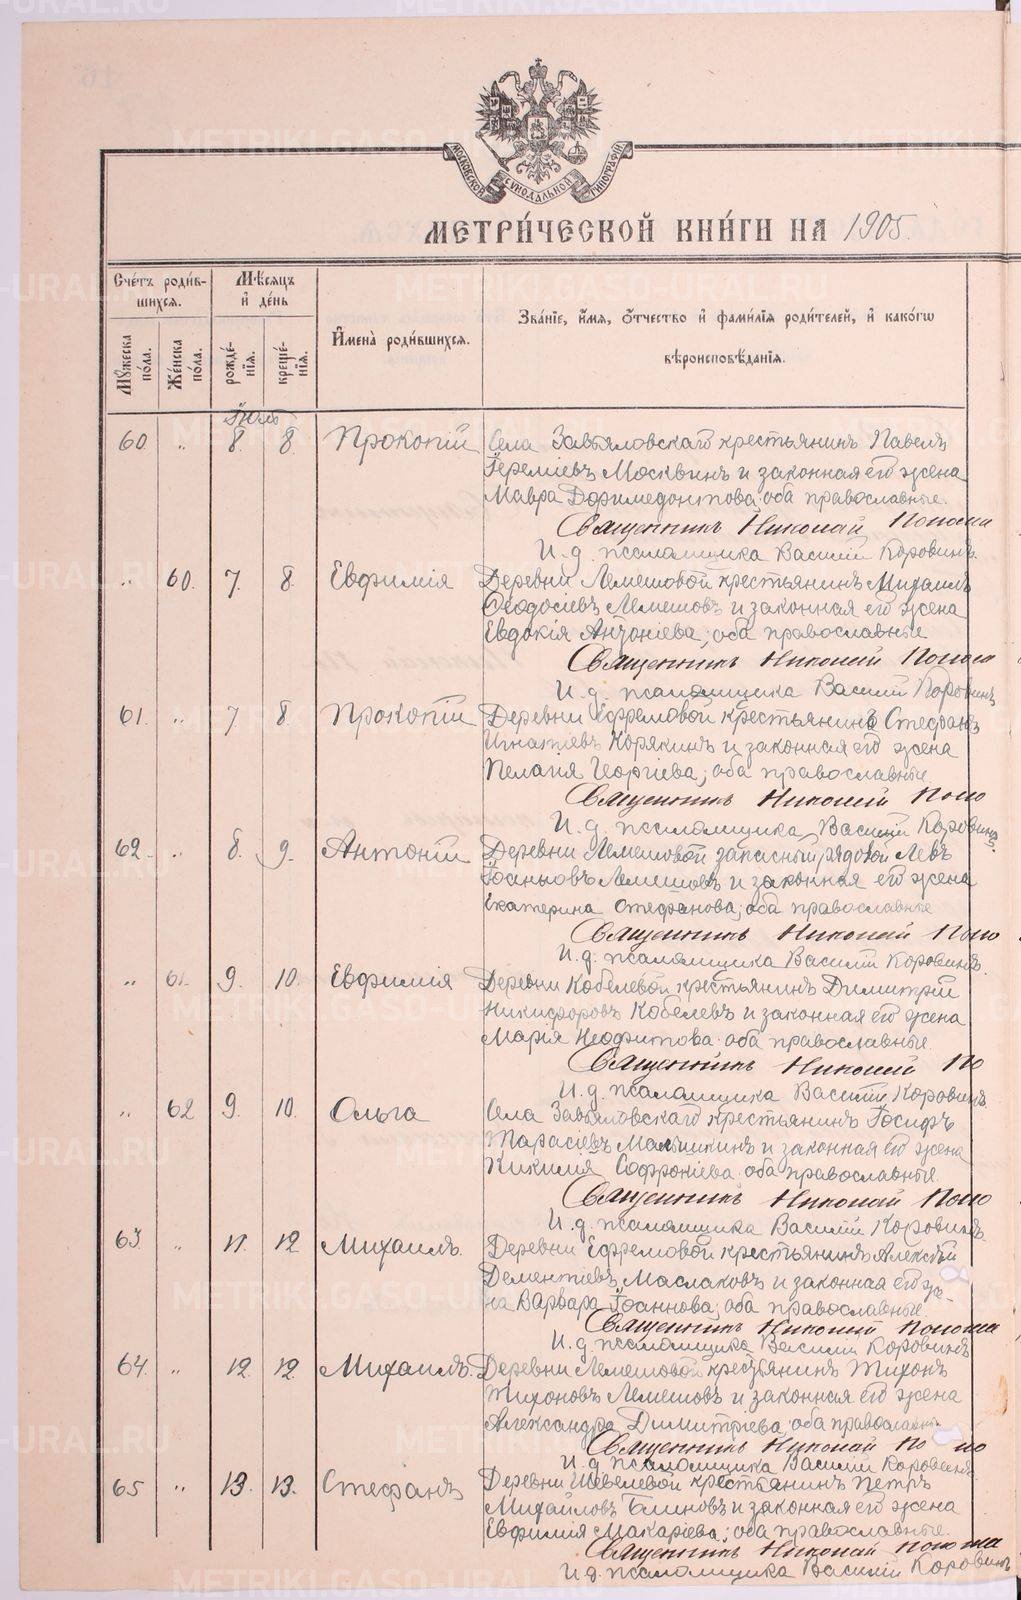 МОСКОВСКОЙ СѴНОДАЛЬНОЙ ТИПОГРАФІИ
МЕТРИ́ЧЕСКОЙ КНИ́ГИ НА 1905.
Сче́тъ роди́в-
шихся.
Мѣ́сяцъ
и҆ де́нь
И҆мена̀ роди́вшихся.
Зва́нїе, и҆́мя, о҆́тчество и҆ фами́лїя роди́телей, и҆ како́гѡ
вѣроисповѣ́данїя.
Мꙋ́жеска по́ла.
Же́нска по́ла.
рожде́-
нїя.
креще́-
нїя.
Іюль
60 " 8. 8. Прокопій Села Завьяловскаго крестьянинъ Павелъ
Іереміевъ Москвинъ и законная его жена
Мавра Дофимедонтова; оба православные.
Священникъ Николай
И. д. псаломщика Василій Коровинъ
" 60. 7. 8. Евфимія Деревни Лемешовой крестьянинъ Михаилъ
Ѳеодосіевъ Лемешовъ и законная его жена
Евдокія Антоніева; оба православные
Священникъ Николай
И. д. псаломщика Василій Коровинъ
61. " 7 8. Прокопій Деревни Ефремовой крестьянинъ Стефанъ
Игнатіевъ Корякинъ и законная его жена
Пелагія Георгіева; оба православные.
Священникъ Николай
И. д. псаломщика Василій Коровинъ.
62. " 8. 9. Антоній Деревни Лемешовой запасный рядовой Левъ
Іоанновъ Лемешовъ и законная его жена
Екатерина Стефанова; оба православные
Священникъ Николай
И. д. псаломщика Василій Коровинъ.
" 61. 9. 10. Евфимія Деревни Кобелевой крестьянинъ Димитрій
Никифоровъ Кобелевъ и законная его жена
Марія Неофитова; оба православные.
Священникъ Николай
И. д. псаломщика Василій Коровинъ
" 62 9. 10. Ольга Села Завьяловскаго крестьянинъ Іосифъ
Тарасіевъ Малышкинъ и законная его жена
Кикилія Софроніева; оба православные.
Священникъ Николай
И. д. псаломщика Василій Коровинъ.
63. " 11. 12 Михаилъ. Деревни Ефремовой крестьянинъ Алексѣй
Дементіевъ Маслаковъ и законная его же-
на Варвара Іоаннова; оба православные
Священникъ Николай
И. д. псаломщика Василій Коровинъ
64. " 12. 12. Михаилъ. Деревни Лемешовой крестьянинъ Тихонъ
Тихоновъ Лемешовъ и законная его жена
Александра Димитріева; оба православные
Священникъ Николай
И. д. псаломщика Василій Коровинъ
65 " 13. 13. Стефанъ Деревни Шевелевой крестьянинъ Петръ
Михайловъ Блиновъ и законная его жена
Евфимія Макаріева; оба православные.
Священникъ Николай
И. д. псаломщика Василій Коровинъ
METRIKI.GASO-URAL.RU